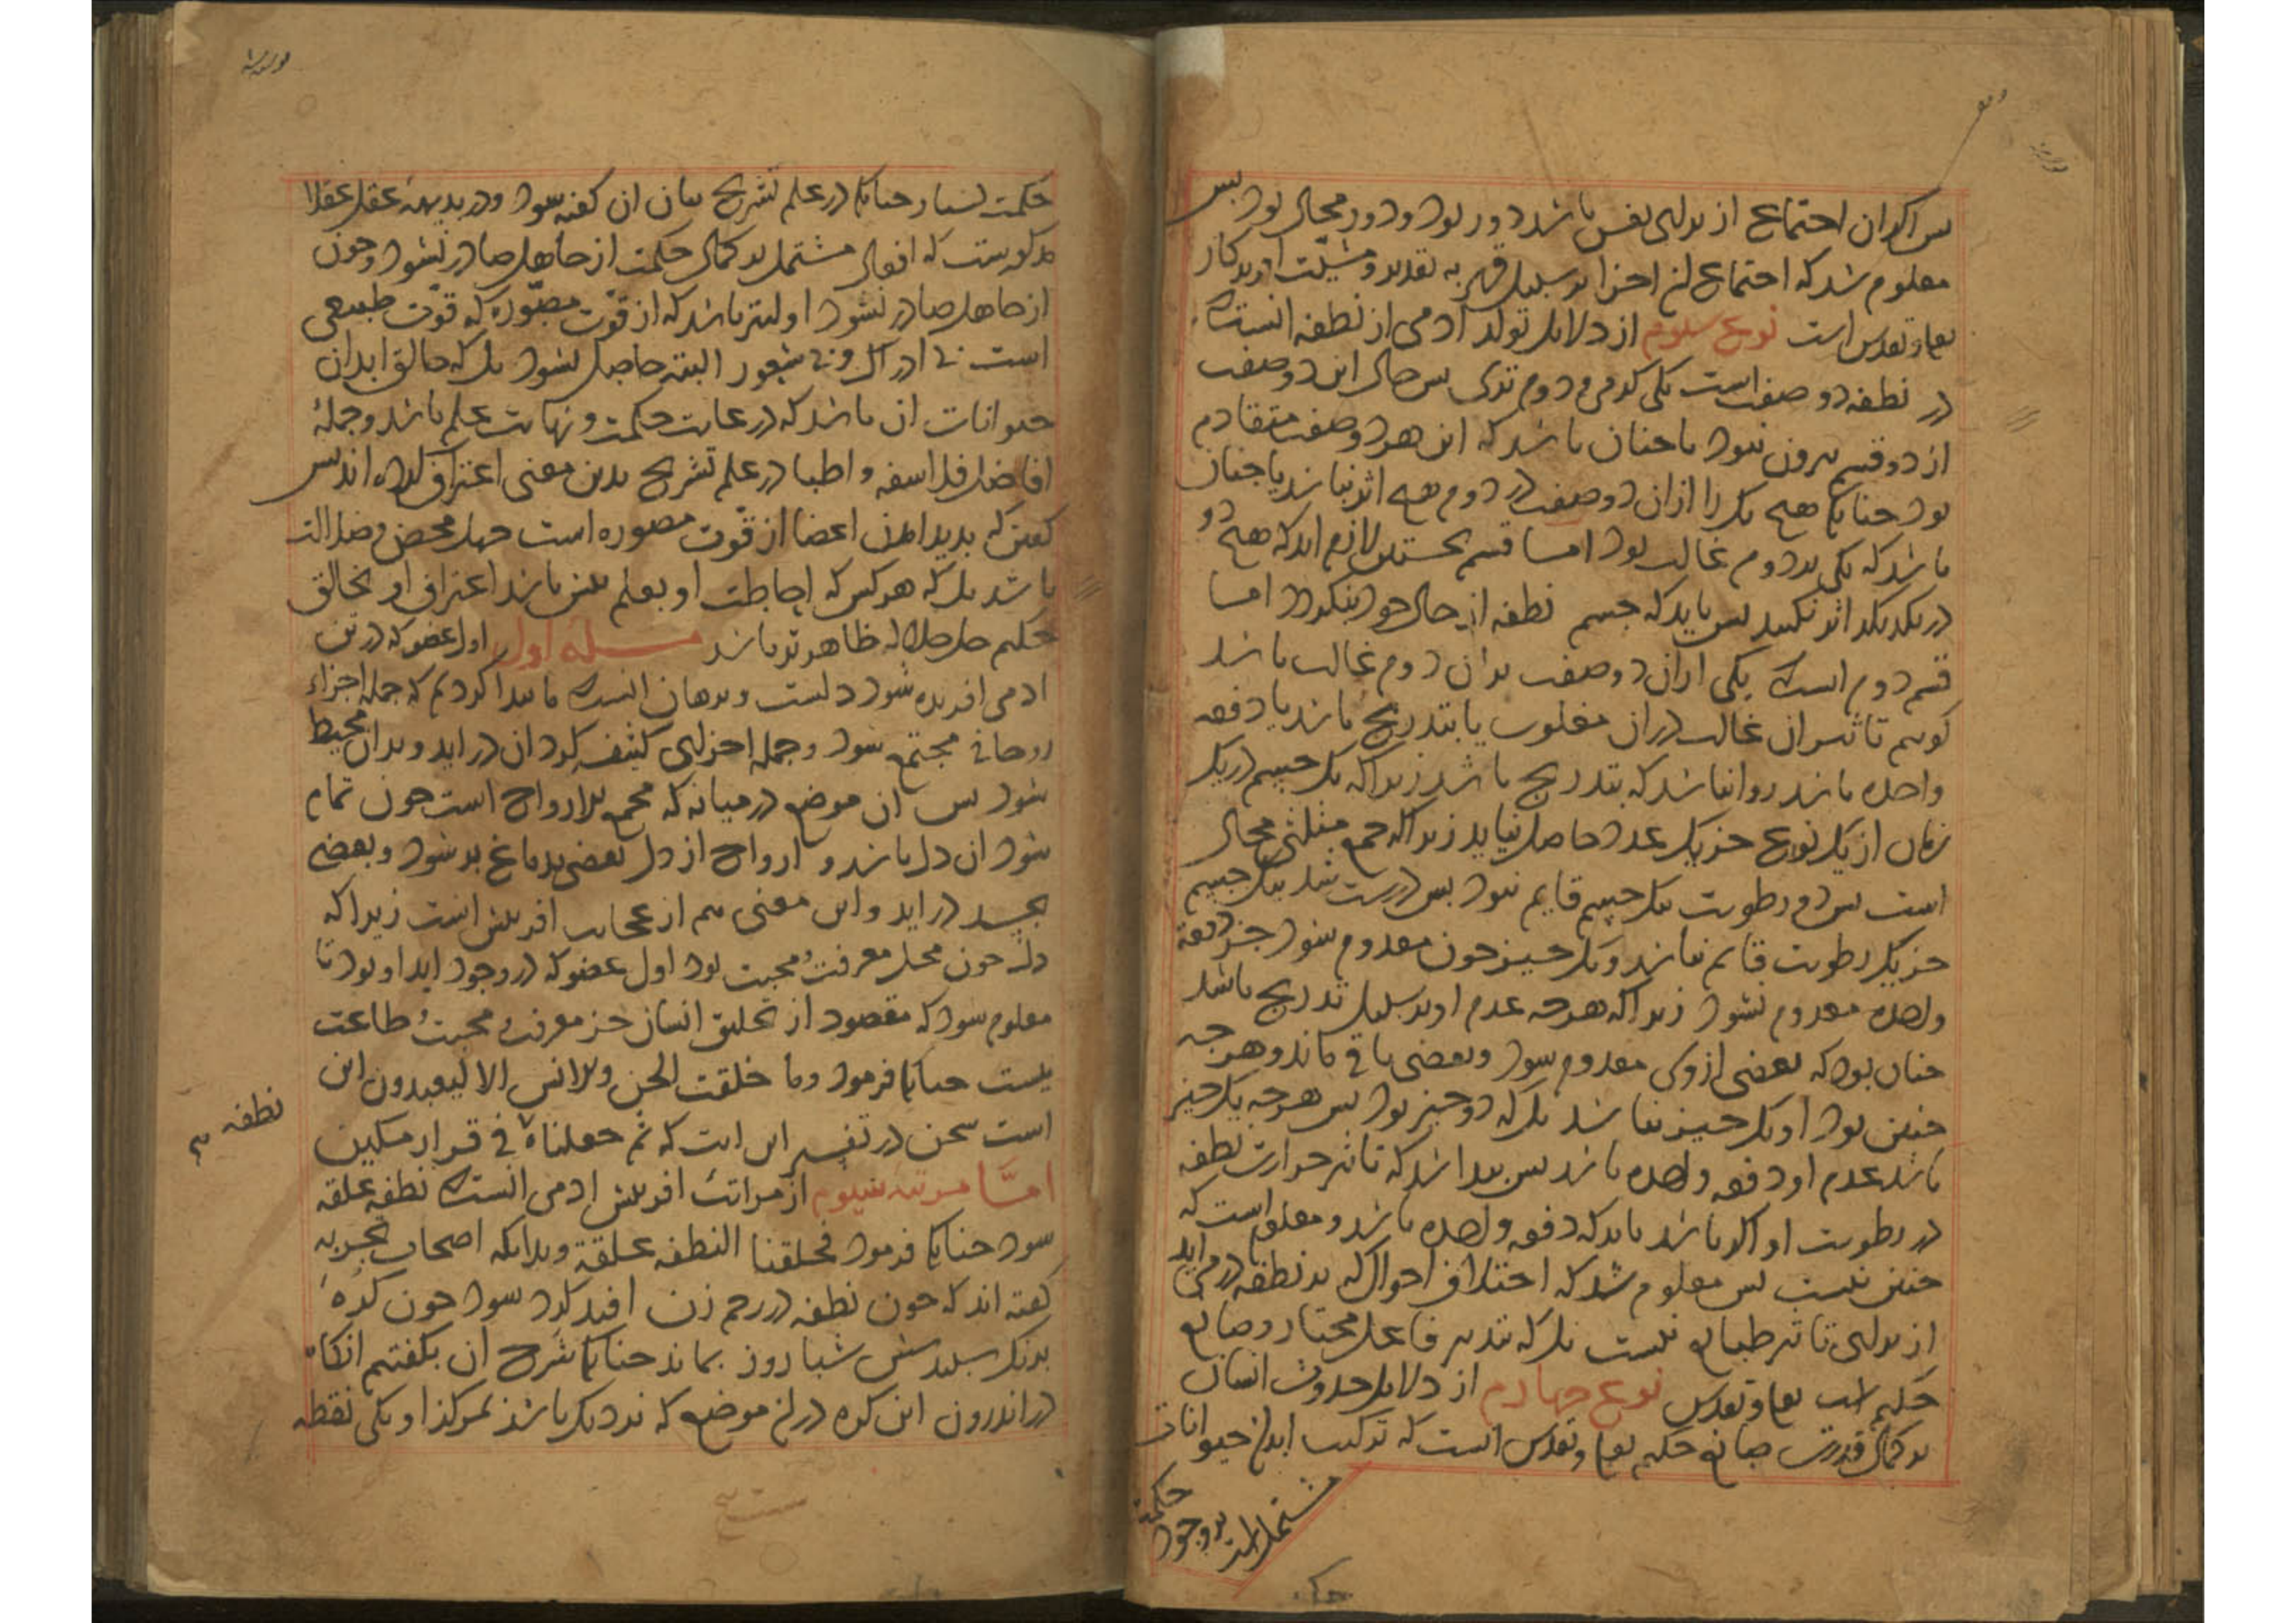 پس اگر ان اجتماع از برای نفس باشد دور بود و دور محال بود پس
معلوم شد که اجتماع این اجزا بر سبیل قهر به تقدیر و مشیّت افریدکار
تعالی و تقدس است نوع سوم از دلایل تولد آدمی از نطفه انست که
در نطفه دو صفت است یکی کرمی و دوم تری پس حال این دو صفت
از دو قسم بیرون نبود یا چنان باشد که این هر دو صفت متقادم
بود چنانک هیچ یک را از ان دو صفت در دوم هیچ اثر نباشد یا چنان
باشد که یکی بر دوم غالب بود امسا قسم نخستین لازم اید که هیچ دو
در یکدیکر اثر نکنند پس باید که جسم نطفه از حال خود بنکردد امسا
قسم دوم انست که یکی از ان دو صفت بر ان دوم غالب باشد
کوییم تاثیر ان غالب در ان مغلوب یا بتدریج باشد یا دفعه
واحده باشد روا نباشد که بتدریج باشد زیرا که یک جسم در یک
زمان از یک نوع جز یک عدد حاصل نیاید زیرا که جمع مثلین محال
است پس دو رطوبت بیک جسم قایم نبود پس درست شد بیک جسم
جز یک رطوبت قایم نباشد و یک چیز چون معدوم شود جز دفعة
واحده معدوم نشود زیرا که هرچه عدم او بر سبیل تدریج باشد
چنان بود که بعضی از وی معدوم شود و بعضی باقی ماند و هر چه
چنین بود او یک چیز نباشد بل که دو چیز بود پس هر چه یک چیز
باشد عدم او دفعه واحده باشد پس پیدا شد که تاثیر حرارت نطفه
در رطوبت او اکر باشد باید که دفعه واحده باشد و معلوم است که
چنین نیست پس معلوم شد که اختلاف احوال که بر نطفه در می اید
از برای تاثیر طبایع نیست بل که تدبیر فاعل مختار و صانع
حکیم است تعالی و تقدس نوع چهارم از دلایل حدوث انسان
بر کمال قدرت صانع حکیم تعالی و تقدس انست که ترکیب ابدان حیوانات
مشتمل است بر وجود حکمة
حکمت بسیار چنانک در علم تشریح بیان ان کفته شود و در بدیهه عقل عقلا
مرکوزست که افعال مشتمل بر کمال حکمت از جاهل صادر نشود و چون
از جاهل صادر نشود اولیتر باشد که از قوّت مصوّره که قوّت طبیعی
است بی ادراک و بی شعور البته حاصل نشود بل که خالق ابدان
حیوانات ان باشد که در غایت حکمت و نهایت علم باشد و جملهٔ
افاضل فلاسفه و اطبا در علم تشریح بدین معنی اعتراف کرده اند پس
کفتن که پدید امدن اعضا از قوّت مصوره است جهل محض و ضلالت
باشد بل که هر کس که احاطت او بعلم بیش باشد اعتراف او بخالق
حکیم جل جلاله ظاهرتر باشد مسئله اول اول عضو که در تن
ادمی افریده شود دلست و برهان انست که ما پیدا کردیم که جمله اجزاء
روحانی مجتمع شود و جمله اجزای کثیف کرد ان در اید و بدان محیط
شود پس ان موضع در میانه که مجمع للارواح است چون تمام
شود ان دل باشد و ارواح از دل بعضی بدماغ بر شود و بعضی
بجسد در اید و این معنی هم از عجایب افرینش است زیرا که
دل چون محل معرفت و محبت بود اول عضو که در وجود اید او بود تا
معلوم شود که مقصود از تخلیق انسان جز معرفت و محبت و طاعت
نیست چنانک فرمود وما خلقت الجن والانس الا لیعبدون این
است سخن در تفسیر این ایت که ثم جعلناه فی قرار مکین
نطفه
امسّا مرتبه سیوم از مراتب افرینش ادمی انست که نطفه علقه
شود چنانک فرمود فخلقنا النطفه علقة و بدانکه اصحاب تجربه
کفته اند که چون نطفه در رحم زن افتد کرد شود چون کره
بدنک سپید شش شبا روز بماند چنانک شرح ان بکفتیم انکاه
در اندرون این کره در ان موضع که نزدیک باشد بمرکز او یکی نقطه